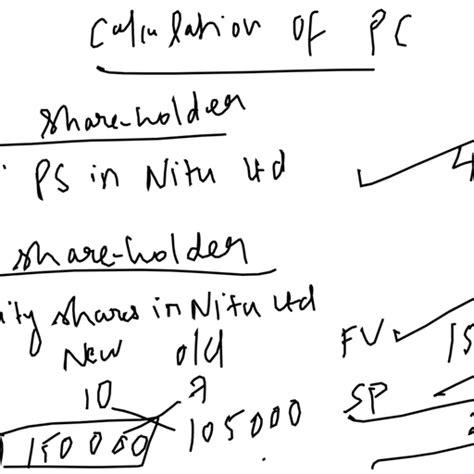 Calculation OF PC
share-holder
PS in Nitu ltd
share-holder
ity shares in Nitu ltd
New old FV 15
10 7 SP
150000 105000